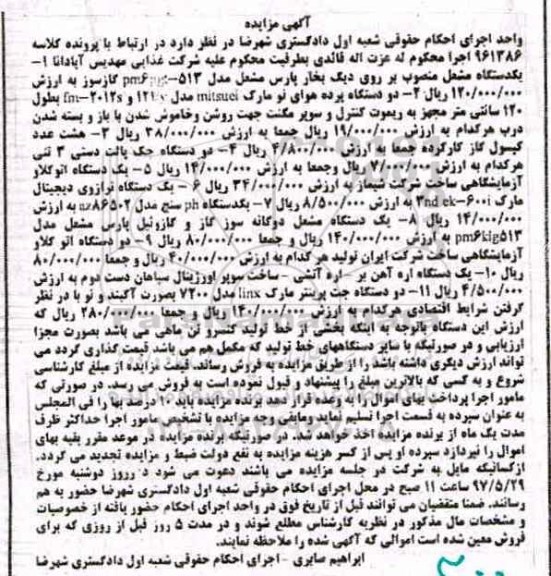 آگهی مزایده
واحد اجرای احکام حقوقی شعبه اول دادگستری شهرضا در نظر دارد در ارتباط با پرونده کلاسه
۹۶۱۳۸۶ اجرا محکوم له عزت اله قائدی بطرفیت محکوم علیه شرکت غذایی مهدیس آپادانا ۱-
یکدستگاه مشعل منصوب بر روی دیگ بخار پارس مشعل مدل ۵۱۳- گازسوز به ارزش
۱۲۰/۰۰۰/۰۰۰ ریال ۲- دو دستگاه پرده هوای نو مارک mitsuei مدل و fm-۲۰۱۲s بطول
۱۲۰ سانتی متر مجهز به ریموت کنترل و سوپر مگنت جهت روشن وخاموش شدن با باز و بسته شدن
درب هرکدام به ارزش ۱۹/۰۰۰/۰۰۰ ریال جمعا به ارزش ۳۸/۰۰۰/۰۰۰ ریال ۳- هشت عدد
کپسول گاز کارکرده جمعا به ارزش ۴/۸۰۰/۰۰۰ ریال ۴- دو دستگاه جک پالت دستی ۳ تنی
هرکدام به ارزش ۷/۰۰۰/۰۰۰ ریال وجمعا به ارزش ۱۴/۰۰۰/۰۰۰ ریال ۵- یک دستگاه اتوکلاو
آزمایشگاهی ساخت شرکت شیماز به ارزش ۳۴/۰۰۰/۰۰۰ ریال ۶- یک دستگاه ترازوی دیجیتال
مارک and ek-۶۰۰i به ارزش ۸/۵۰۰/۰۰۰ ریال ۷- یکدستگاه ph سنج مدل az۸۶۵۰۲ به ارزش
۱۴/۰۰۰/۰۰۰ ریال ۸- یک دستگاه مشعل دوگانه سوز گاز و گازوئیل پارس مشعل مدل
pm۶kig۵۱۳ به ارزش ۱۴۰/۰۰۰/۰۰۰ ریال و جمعا ۸۰/۰۰۰/۰۰۰ ریال ۹- دو دستگاه اتو کلاو
آزمایشگاهی ساخت شرکت ایران تولید هر کدام به ارزش ۴۰/۰۰۰/۰۰۰ ریال و جمعا ۸۰/۰۰۰/۰۰۰
ریال ۱۰- یک دستگاه اره آهن بر - اره آتشی - ساخت سوپر اورژینال سپاهان دست دوم به ارزش
۴/۵۰۰/۰۰۰ ریال ۱۱- دو دستگاه جت پرینتر مارک linx مدل ۷۲۰۰ بصورت آکبند و نو با در نظر
گرفتن شرایط اقتصادی هرکدام به ارزش ۱۴۰/۰۰۰/۰۰۰ ریال جمعا ۲۸۰/۰۰۰/۰۰۰ ریال که
ارزش این دستگاه باتوجه به اینکه بخشی از خط تولید کنسرو تن ماهی می باشد بصورت مجزا
ارزیابی و در صورتیکه با سایر دستگاههای خط تولید که مکمل هم می باشد قیمت گذاری گردد می
تواند ارزش دیگری داشته باشد را از طریق مزایده به فروش رساند. قیمت مزایده از مبلغ کارشناسی
شروع و به کسی که بالاترین مبلغ را پیشنهاد و قبول نموده است به فروش می رسد. در صورتی که
مامور اجرا پرداخت بهای اموال را به وعده قرار دهد برنده مزایده باید ۱۰ درصد بها را فی المجلس
به عنوان سپرده به قسمت اجرا تسلیم نماید ومابقی وجه مزایده با تشخیص مامور اجرا حداکثر ظرف
مدت یک ماه از برنده مزایده اخذ خواهد شد. در صورتیکه برنده مزایده در موعد مقرر بقیه بهای
اموال را نپردازد سپرده او پس از کسر هزینه مزایده به نفع دولت ضبط و مزایده تجدید می گردد.
ازکسانیکه مایل به شرکت در جلسه مزایده می باشند دعوت می شود در روز دوشنبه مورخ
۹۷/۵/۲۹ ساعت ۱۱ صبح در محل اجرای احکام حقوقی شعبه اول دادگستری شهرضا حضور به هم
رسانند. ضمنا متقضیان می توانند قبل از تاریخ فوق در واحد اجرای احکام حضور یافته از خصوصیات
و مشخصات مال مذکور در نظریه کارشناس مطلع شوند و در مدت ۵ روز قبل از روزی که برای
فروش معین شده است اموالی که آگهی شده را ملاحظه نمایند.
ابراهیم صابری - اجرای احکام حقوقی شعبه اول دادگستری شهرضا